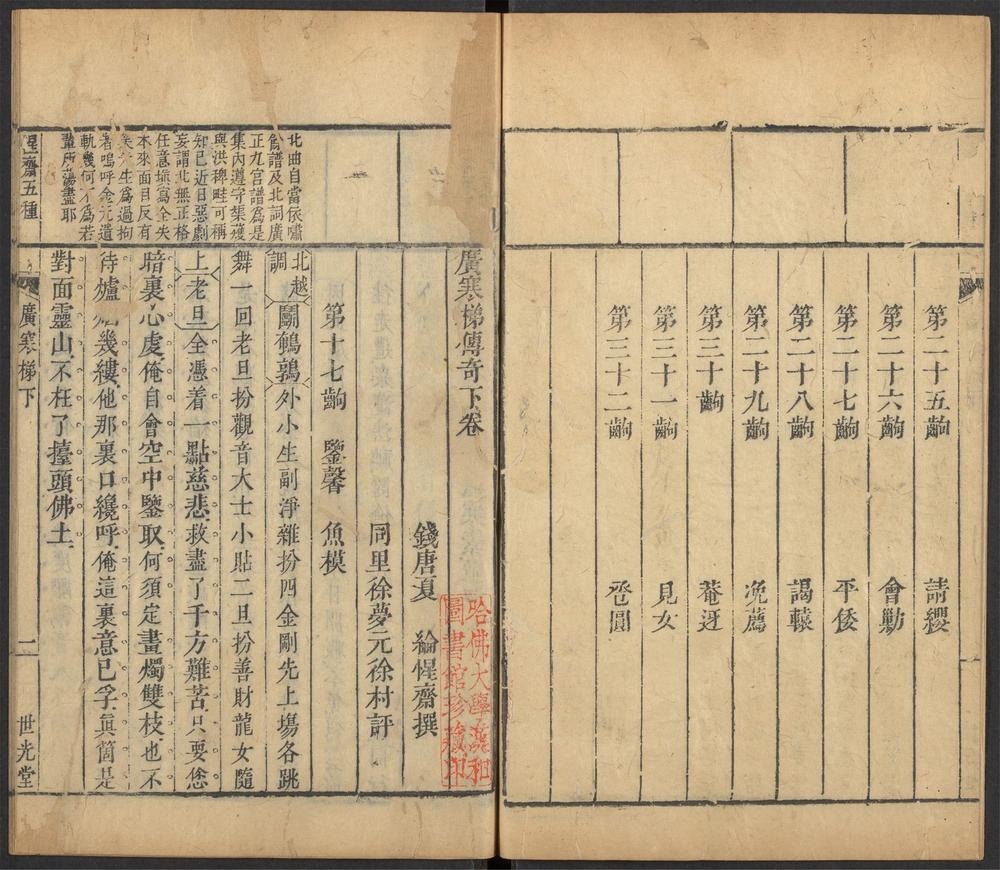 第二十五齣 請纓
第二十六齣 會勦
第二十七齣 平倭
第二十八齣 謁轅
第二十九齣 免薦
第三十齣 菴迓
第三十一齣 見女
第三十二齣 卺圓
廣寒梯傳奇下卷
錢唐夏 綸惺齋撰
同里徐夢元徐村評
哈佛大學漢和
圖書館珍藏印
第十七齣 鑒馨 魚模
北越調
鬭鵪鶉
外小生副淨雜扮四金剛先上塲各跳
舞一回老旦扮觀音大士小貼二旦扮善財龍女隨
上老旦全憑着一點慈悲救盡了千方難苦只要您
暗裏心虔俺自會空中鑒取何須定畫燭雙枝也不
待爐 幾縷他那裏口纔呼俺這裏意已孚眞箇是
對面靈山不枉了擡頭佛土
北曲自當依嘯
餘譜及北詞廣
正九宮譜爲是
集內遵守榘矱
與洪稗畦可稱
知已近日惡劇
妄謂北無正格
任意塡寫全失
本來面目反有
生爲過拘
者嗚呼金元遺
軌幾何不爲若
輩所蕩盡耶
惺齋五種
廣寒梯下
二
世光堂